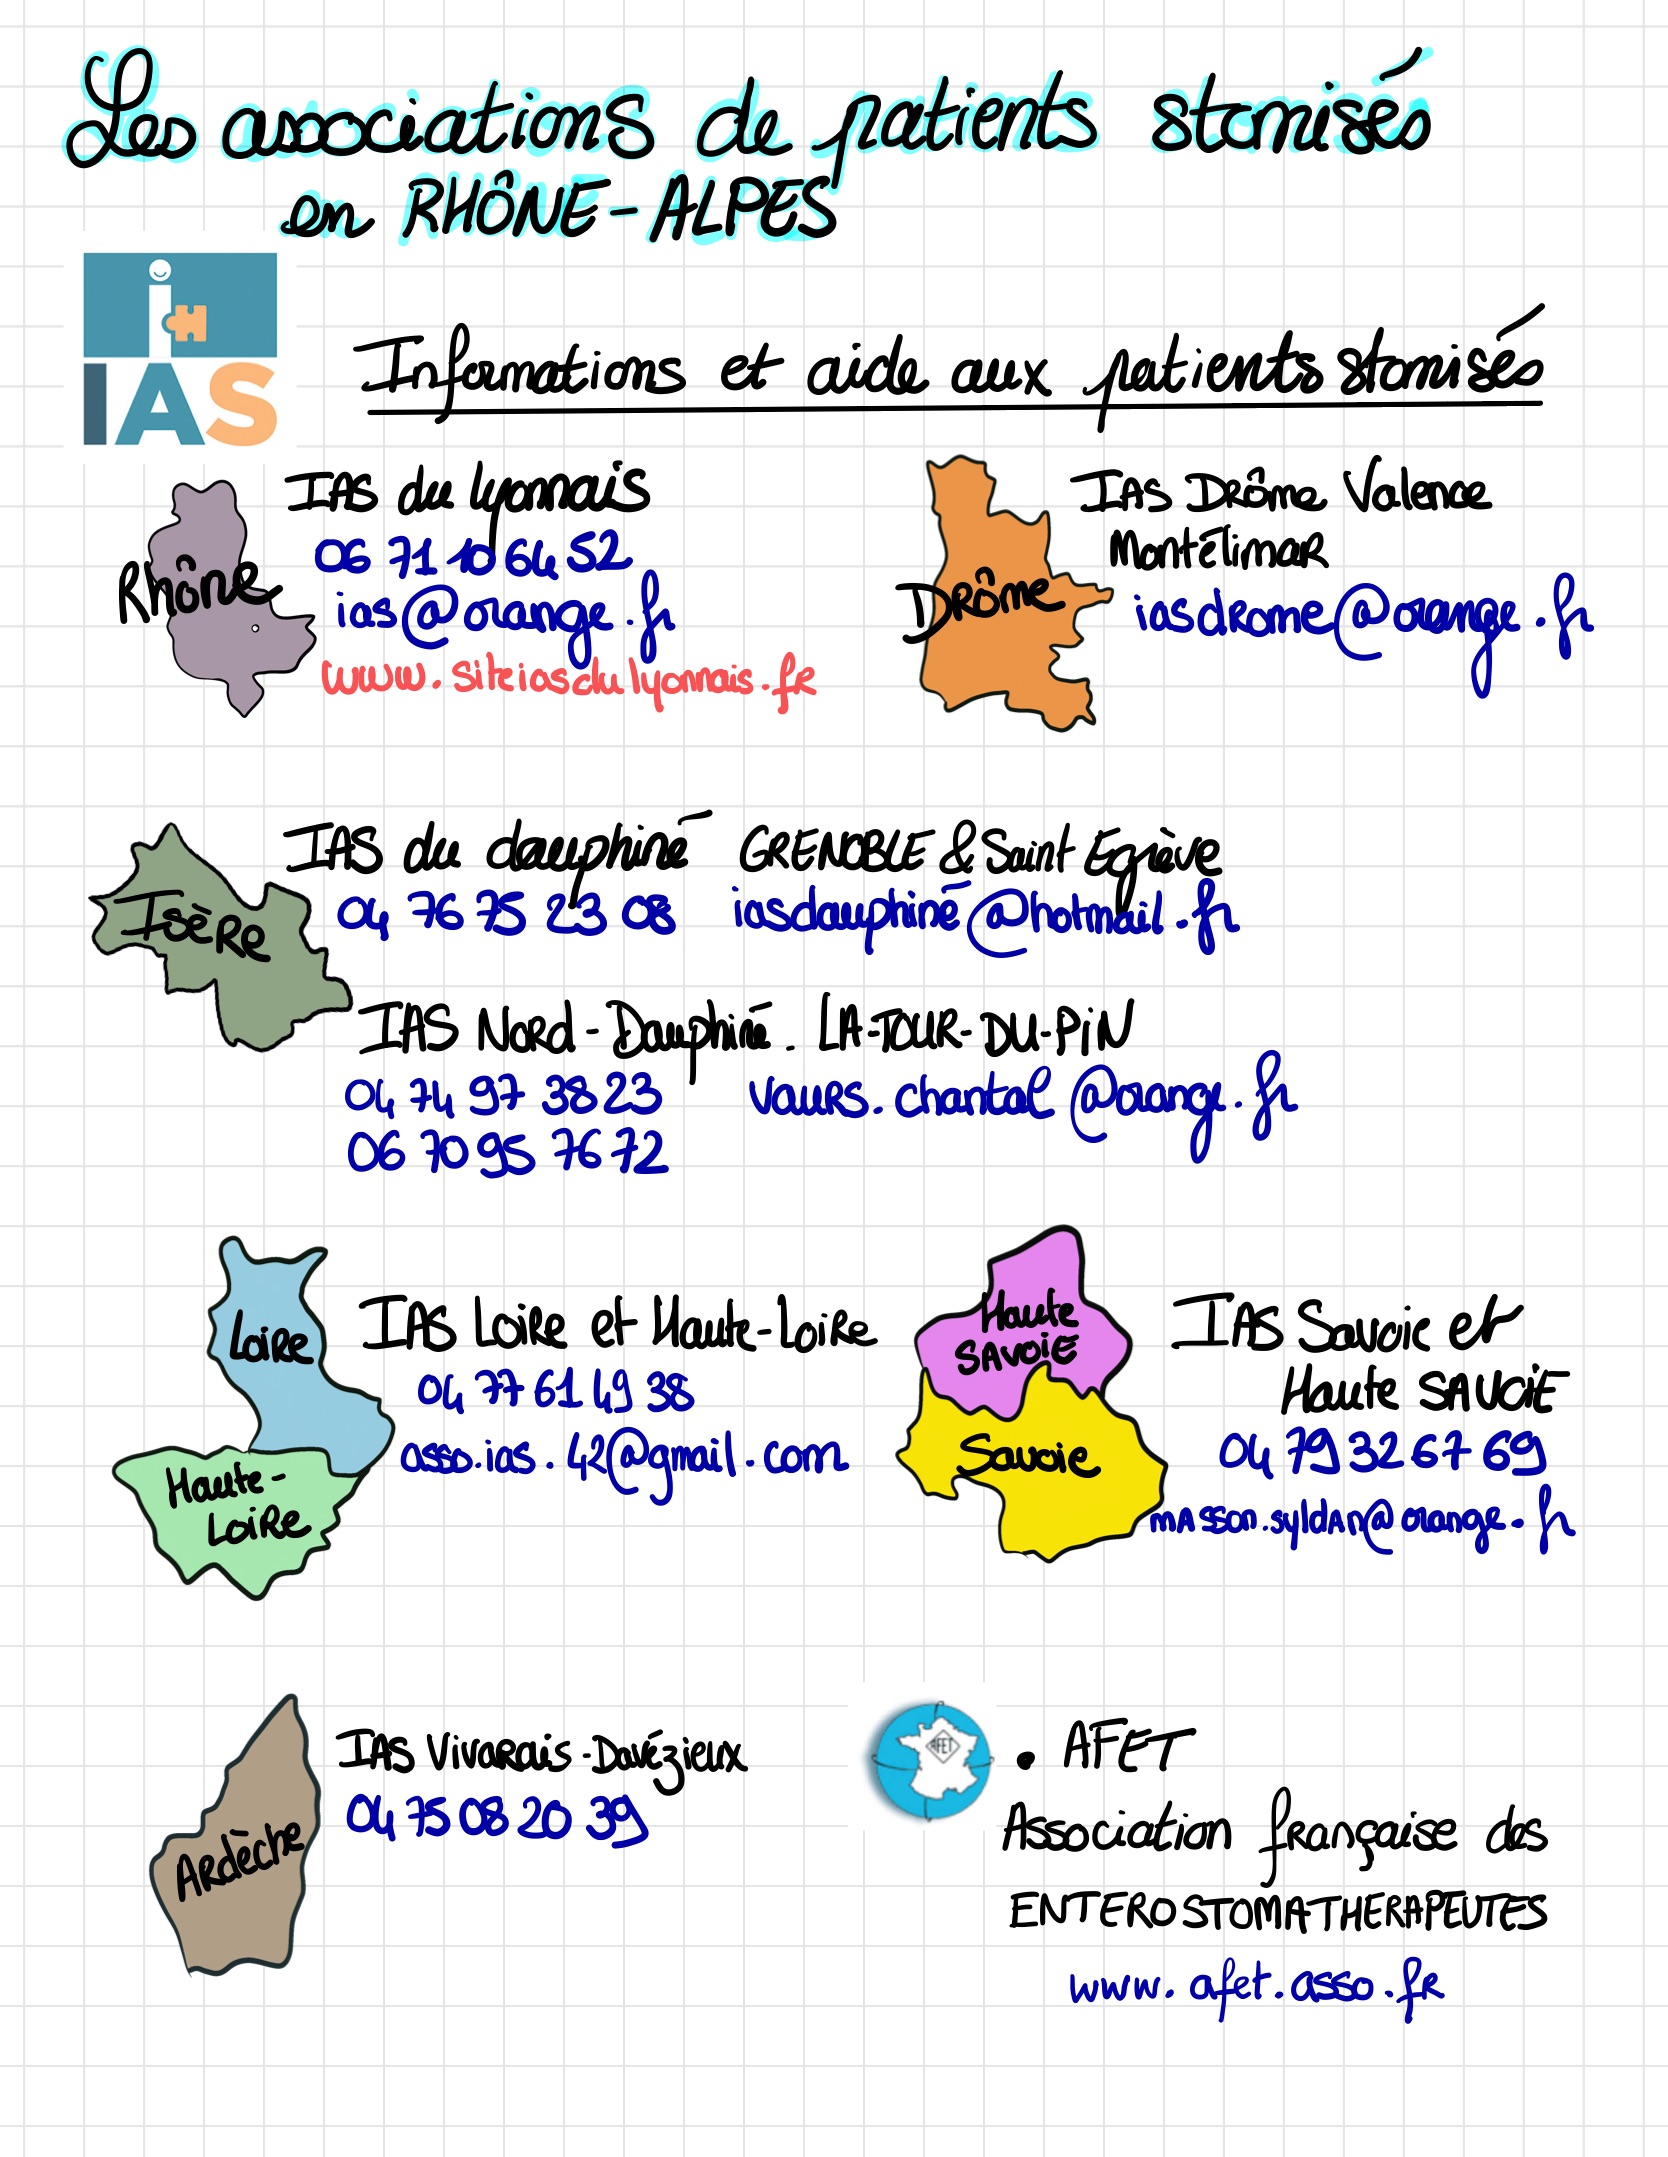 Les associations de patients stomisés
en RHÔNE-ALPES
i
IAS
Informations et aide aux patients stomisés
Rhône
IAS du lyonnais
06 71 10 64 52
ias@orange.fr
www.siteiasdulyonnais.fr
Drôme
IAS Drôme Valence
Montélimar
iasdrome@orange.fr
Isère
IAS du dauphiné GRENOBLE & Saint Egrève
04 76 75 23 08 iasdauphiné@hotmail.fr
IAS Nord-Dauphiné. LA-TOUR-DU-PiN
04 74 97 38 23 vaurs.chantal@orange.fr
06 70 95 76 72
Loire
Haute-
Loire
IAS Loire et Haute-Loire
04 77 61 49 38
asso.ias.42@gmail.com
Haute
SAVOIE
Savoie
IAS Savoie et
Haute SAVOIE
04 79 32 67 69
masson.syldan@orange.fr
Ardèche
IAS Vivarais-Davézieux
04 75 08 20 39
AFET
• AFET
Association française des
ENTEROSTOMATHERAPEUTES
www.afet.asso.fr